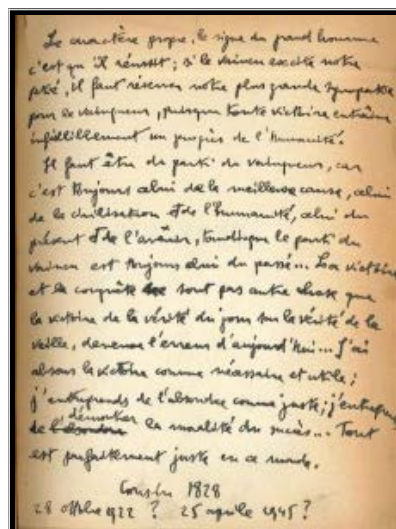 Le caractère propre, le signe du grand homme
c'est qu'il réussit ; si le vaincu excite notre
pitié, il faut réserver notre plus grande sympathie
pour le vainqueur, puisque toute victoire entraîne
infailliblement un progrès de l'humanité.
Il faut être du parti du vainqueur, car
c'est toujours celui de la meilleure cause, celui
de la civilisation et de l'humanité, celui du
présent et de l'avenir, tandis que le parti du
vaincu est toujours celui du passé... La victoire
et la conquête ne sont pas autre chose que
la victoire de la vérité du jour sur la vérité de la
veille, devenue l'erreur d'aujourd'hui... J'ai
absous la victoire comme nécessaire et utile ;
j'entreprends de l'absoudre comme juste ; j'entreprends
de démontrer la moralité du succès... Tout
est parfaitement juste en ce monde.
Cousin 1828
28 ottobre 1922 ? 25 aprile 1945 ?